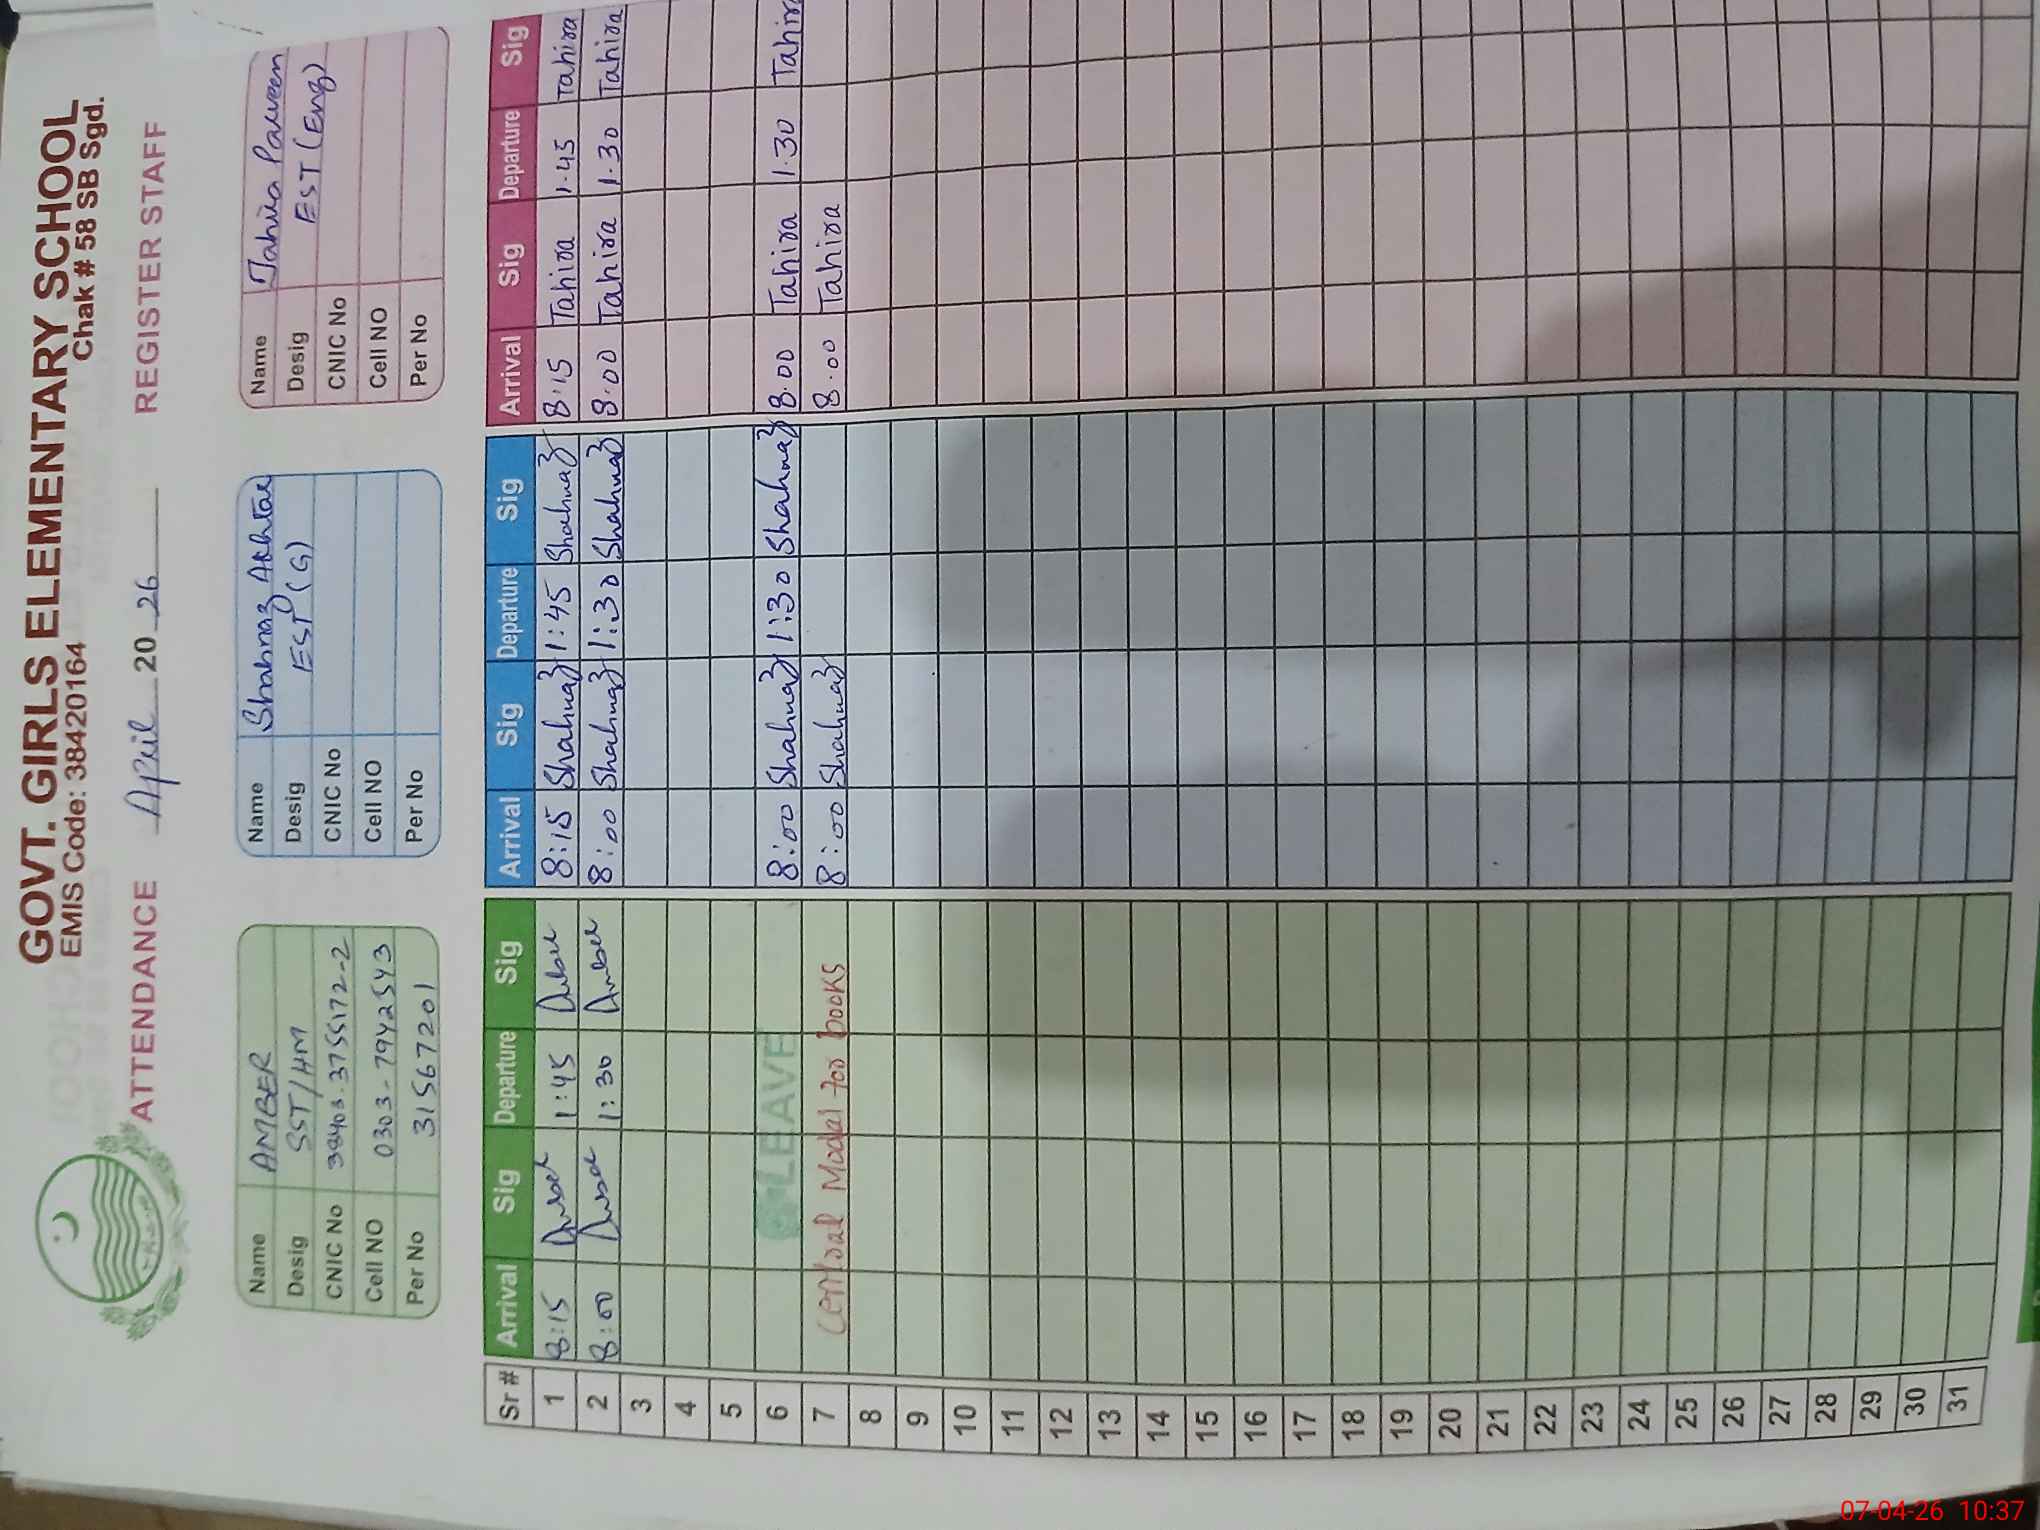 GOVT. GIRLS ELEMENTARY SCHOOL
EMIS Code: 38420164 Chak # 58 SB Sgd.
ATTENDANCE April 20 26 REGISTER STAFF
Name AMBER
Desig SST/HM
CNIC No 38403-3755172-2
Cell NO 0303-7942543
Per No 31567201
Name Shahnaz Akhtar
Desig EST (G)
CNIC No
Cell NO
Per No
Name Tahira Parveen
Desig EST (Eng)
CNIC No
Cell NO
Per No
Sr # Arrival Sig Departure Sig Arrival Sig Departure Sig Arrival Sig Departure Sig
1 8:15 Amber 1:45 Amber 8:15 Shahnaz 1:45 Shahnaz 8:15 Tahira 1.45 Tahira
2 8:00 Amber 1:30 Amber 8:00 Shahnaz 1:30 Shahnaz 8:00 Tahira 1.30 Tahira
3
4
5
6 LEAVE 8:00 Shahnaz 1:30 Shahnaz 8.00 Tahira 1.30 Tahira
7 Central Modal for books 8:00 Shahnaz 8.00 Tahira
8
9
10
11
12
13
14
15
16
17
18
19
20
21
22
23
24
25
26
27
28
29
30
31
07-04-26 10:37